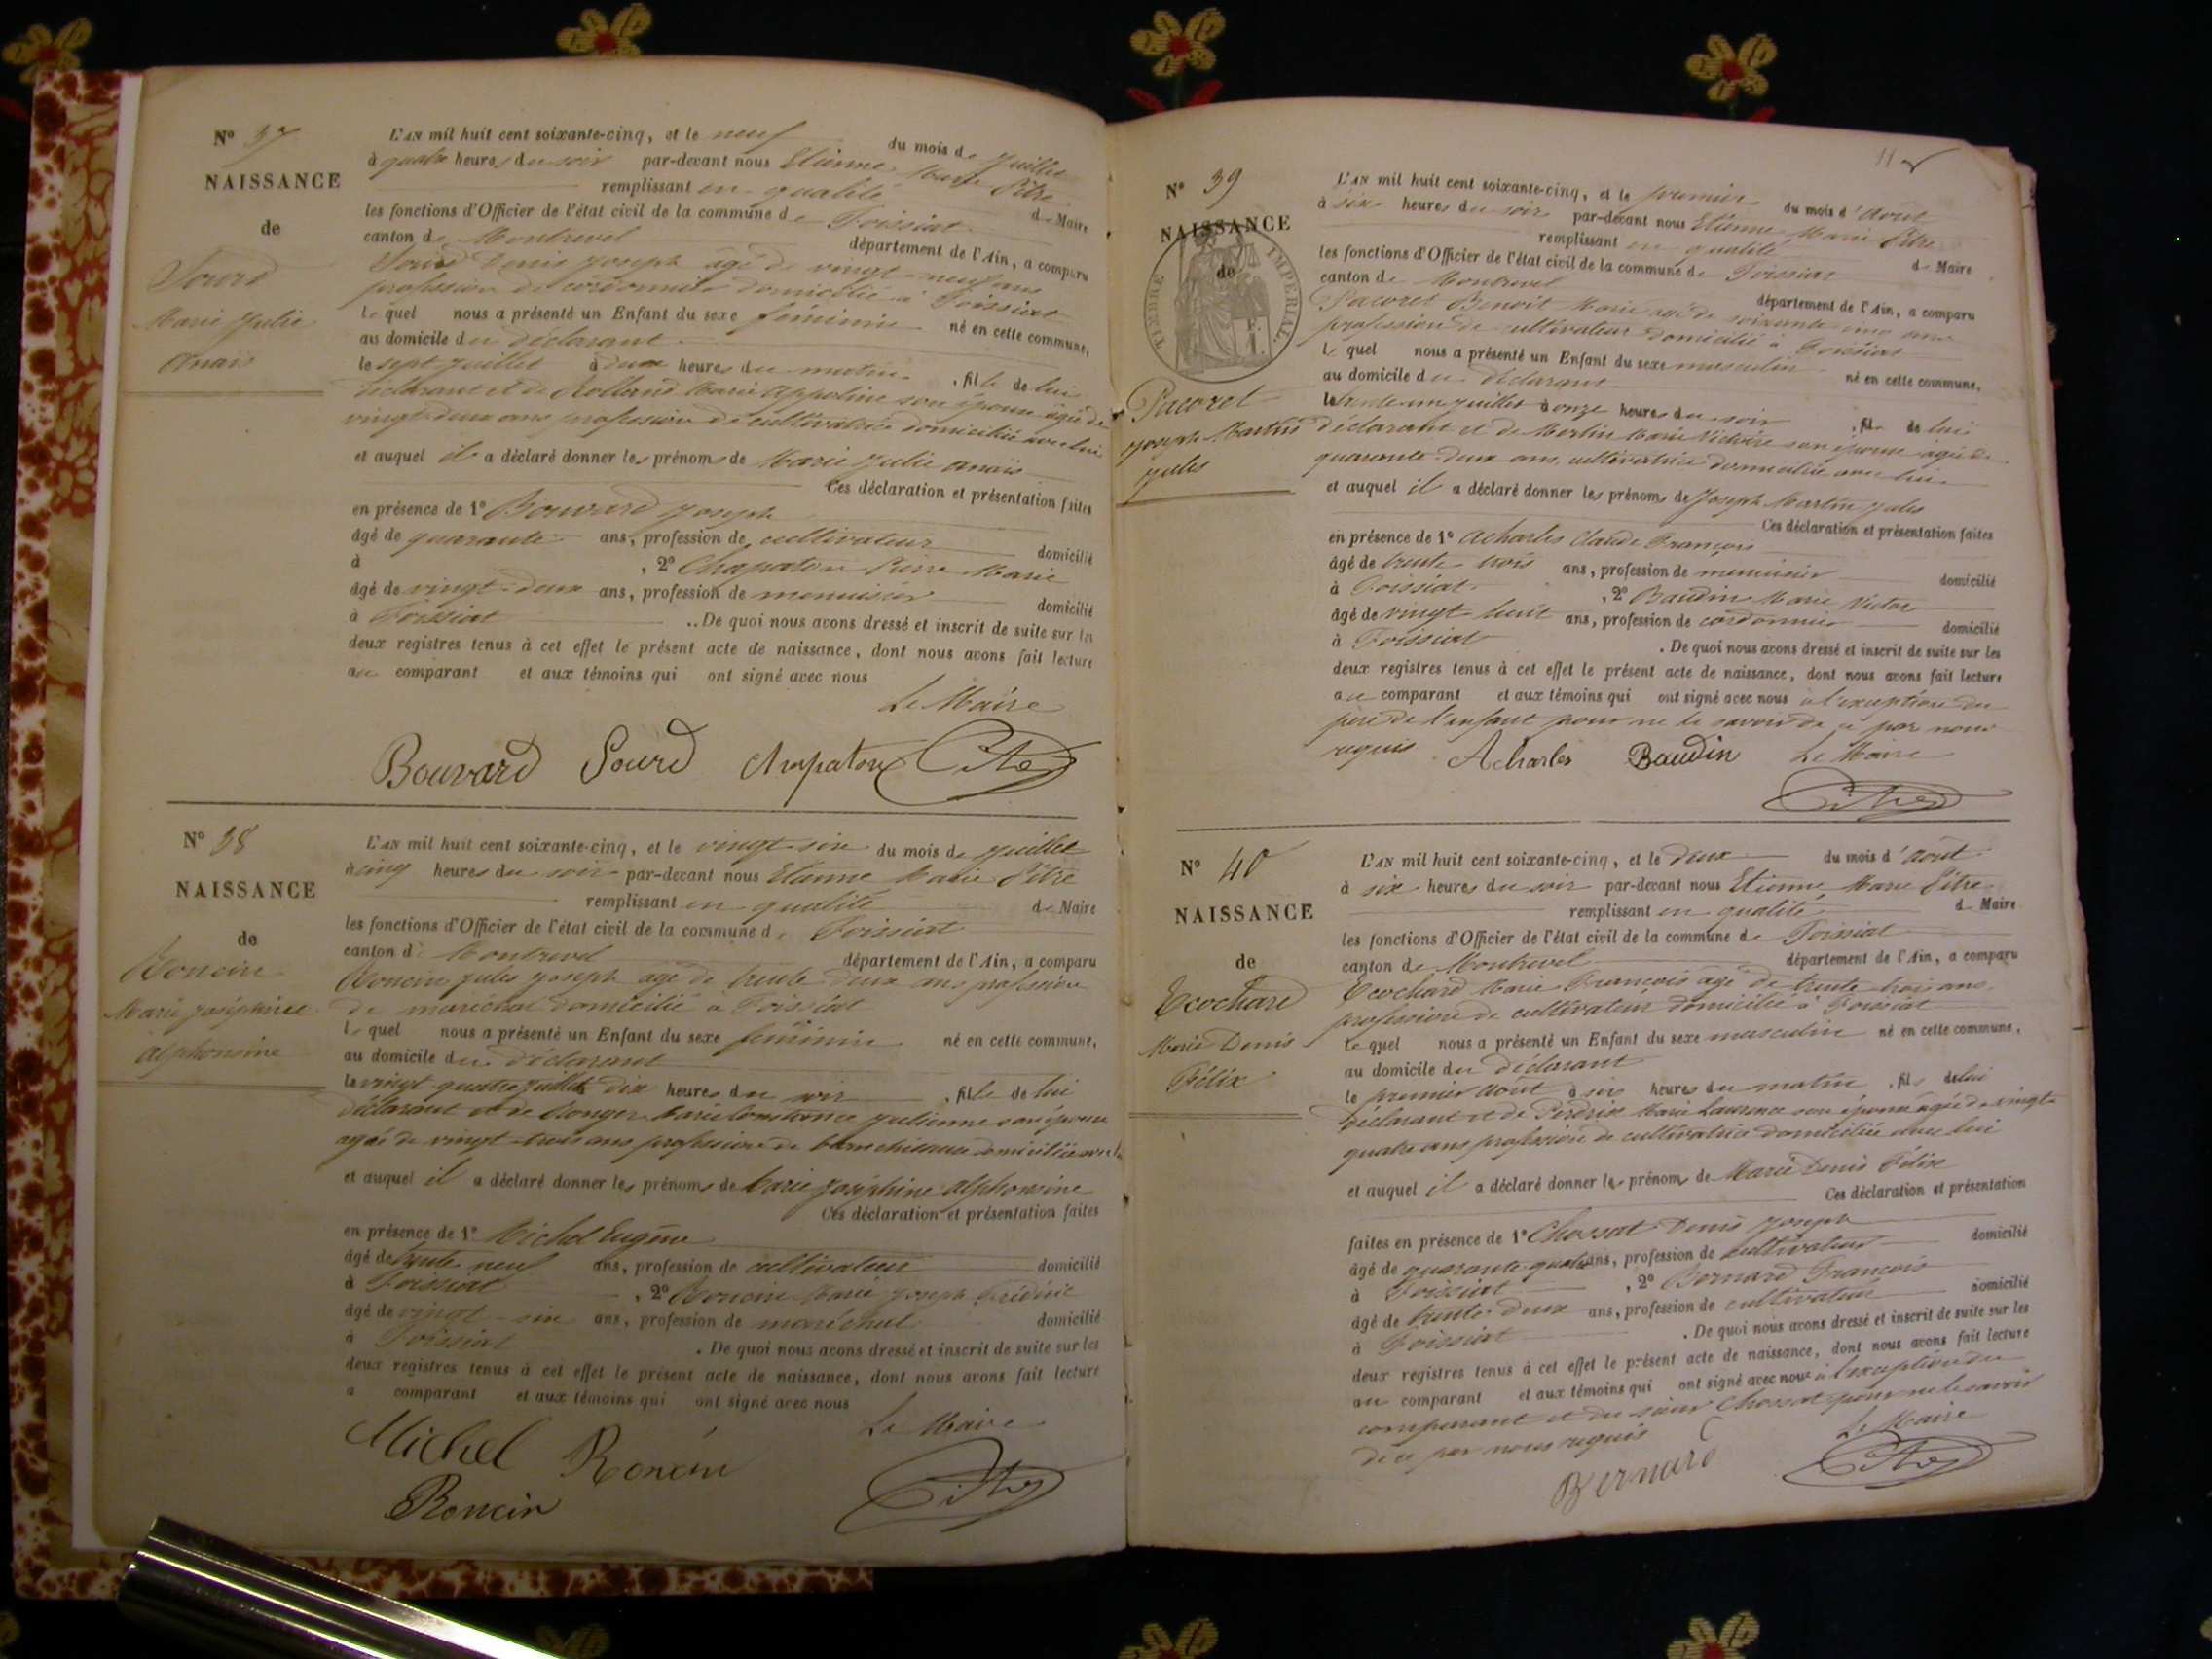 N° 37
NAISSANCE
de
Sourd
Marie Julie
Anaïs
L'AN mil huit cent soixante-cinq, et le neuf du mois de juillet
à quatre heures du soir par-devant nous Etienne Marie Pitre
remplissant en qualité de Maire
les fonctions d'Officier de l'état civil de la commune de Foissiat
canton de Montrevel département de l'Ain, a comparu
Sourd Denis Joseph âgé de vingt-neuf ans
profession de cordonnier domicilié à Foissiat
Lequel nous a présenté un Enfant du sexe féminin né en cette commune,
au domicile du déclarant
le sept juillet à deux heures du matin, fille de lui
déclarant et de Rolland Marie Appoline son épouse âgée de
vingt-deux ans profession de cultivatrice domiciliée avec lui
et auquel il a déclaré donner les prénoms de Marie Julie Anaïs
Ces déclaration et présentation faites
en présence de 1° Bouvard Joseph
âgé de quarante ans, profession de cultivateur domicilié
à , 2° Chapaton Pierre Marie
âgé de vingt-deux ans, profession de menuisier domicilié
à Foissiat .. De quoi nous avons dressé et inscrit de suite sur les
deux registres tenus à cet effet le présent acte de naissance, dont nous avons fait lecture
au comparant et aux témoins qui ont signé avec nous
Le Maire
Bouvard Sourd Chapaton Pitre
N° 38
NAISSANCE
de
Roncin
Marie Joséphine
Alphonsine
L'AN mil huit cent soixante-cinq, et le vingt-six du mois de juillet
à cinq heures du soir par-devant nous Etienne Marie Pitre
remplissant en qualité de Maire
les fonctions d'Officier de l'état civil de la commune de Foissiat
canton de Montrevel département de l'Ain, a comparu
Roncin Jules Joseph âgé de trente deux ans profession
de maréchal domicilié à Foissiat
Lequel nous a présenté un Enfant du sexe féminin né en cette commune,
au domicile du déclarant
le vingt quatre juillet dix heures du soir, fille de lui
déclarant et de Marie Constance Julienne son épouse
agée de vingt-trois ans profession de blanchisseuse domiciliée avec
et auquel il a déclaré donner les prénoms de Marie Joséphine Alphonsine
Ces déclaration et présentation faites
en présence de 1° Michel Eugène
âgé de trente neuf ans, profession de cultivateur domicilié
à Foissiat , 2° Roncin Marie Joseph Frédéric
âgé de vingt-six ans, profession de maréchal domicilié
à Foissiat . De quoi nous avons dressé et inscrit de suite sur les
deux registres tenus à cet effet le présent acte de naissance, dont nous avons fait lecture
a comparant et aux témoins qui ont signé avec nous
Le Maire
Michel Roncin
Roncin Pitre
11
N° 39
NAISSANCE
de
TIMBRE IMPERIAL.
Pacoret
Joseph Martin
Jules
L'AN mil huit cent soixante-cinq, et le premier du mois d'août
à six heures du soir par-devant nous Etienne Marie Pitre
remplissant en qualité de Maire
les fonctions d'Officier de l'état civil de la commune de Foissiat
canton de Montrevel département de l'Ain, a comparu
Pacoret Benoit Marie agé de soixante cinq ans
profession de cultivateur domicilié à Foissiat
Lequel nous a présenté un Enfant du sexe masculin né en cette commune,
au domicile du déclarant
le trente-un juillet à onze heures du soir, fils de lui
déclarant et de Merlin Marie Victoire son épouse agée de
quarante-deux ans, cultivatrice domiciliée avec lui
et auquel il a déclaré donner les prénoms de Joseph Martin Jules
Ces déclaration et présentation faites
en présence de 1° Acharles Claude François
âgé de trente trois ans, profession de menuisier domicilié
à Foissiat , 2° Baudin Marie Victor
âgé de vingt huit ans, profession de cordonnier domicilié
à Foissiat . De quoi nous avons dressé et inscrit de suite sur les
deux registres tenus à cet effet le présent acte de naissance, dont nous avons fait lecture
au comparant et aux témoins qui ont signé avec nous à l'exception du
père de l'enfant pour ne le savoir de ce par nous
requis Acharles Baudin Le Maire
Pitre
N° 40
NAISSANCE
de
Ecochard
Marie Denis
Félix
L'AN mil huit cent soixante-cinq, et le deux du mois d'août
à six heures du soir par-devant nous Etienne Marie Pitre
remplissant en qualité de Maire
les fonctions d'Officier de l'état civil de la commune de Foissiat
canton de Montrevel département de l'Ain, a comparu
Ecochard Marie François agé de trente trois ans
profession de cultivateur domicilié à Foissiat
Lequel nous a présenté un Enfant du sexe masculin né en cette commune,
au domicile du déclarant
le premier août à six heures du matin, fils de lui
déclarant et de Perdrix Marie Laurence son épouse agée de vingt-
quatre ans profession de cultivatrice domiciliée avec lui
et auquel il a déclaré donner les prénoms de Marie Denis Félix
Ces déclaration et présentation
faites en présence de 1° Chossat Denis Joseph
âgé de quarante-quatre ans, profession de cultivateur domicilié
à Foissiat , 2° Bernard François
âgé de trente-deux ans, profession de cultivateur domicilié
à Foissiat . De quoi nous avons dressé et inscrit de suite sur les
deux registres tenus à cet effet le présent acte de naissance, dont nous avons fait lecture
au comparant et aux témoins qui ont signé avec nous à l'exception du
comparant et du sieur Chossat pour ne le savoir
de ce par nous requis Le Maire
Bernard Pitre